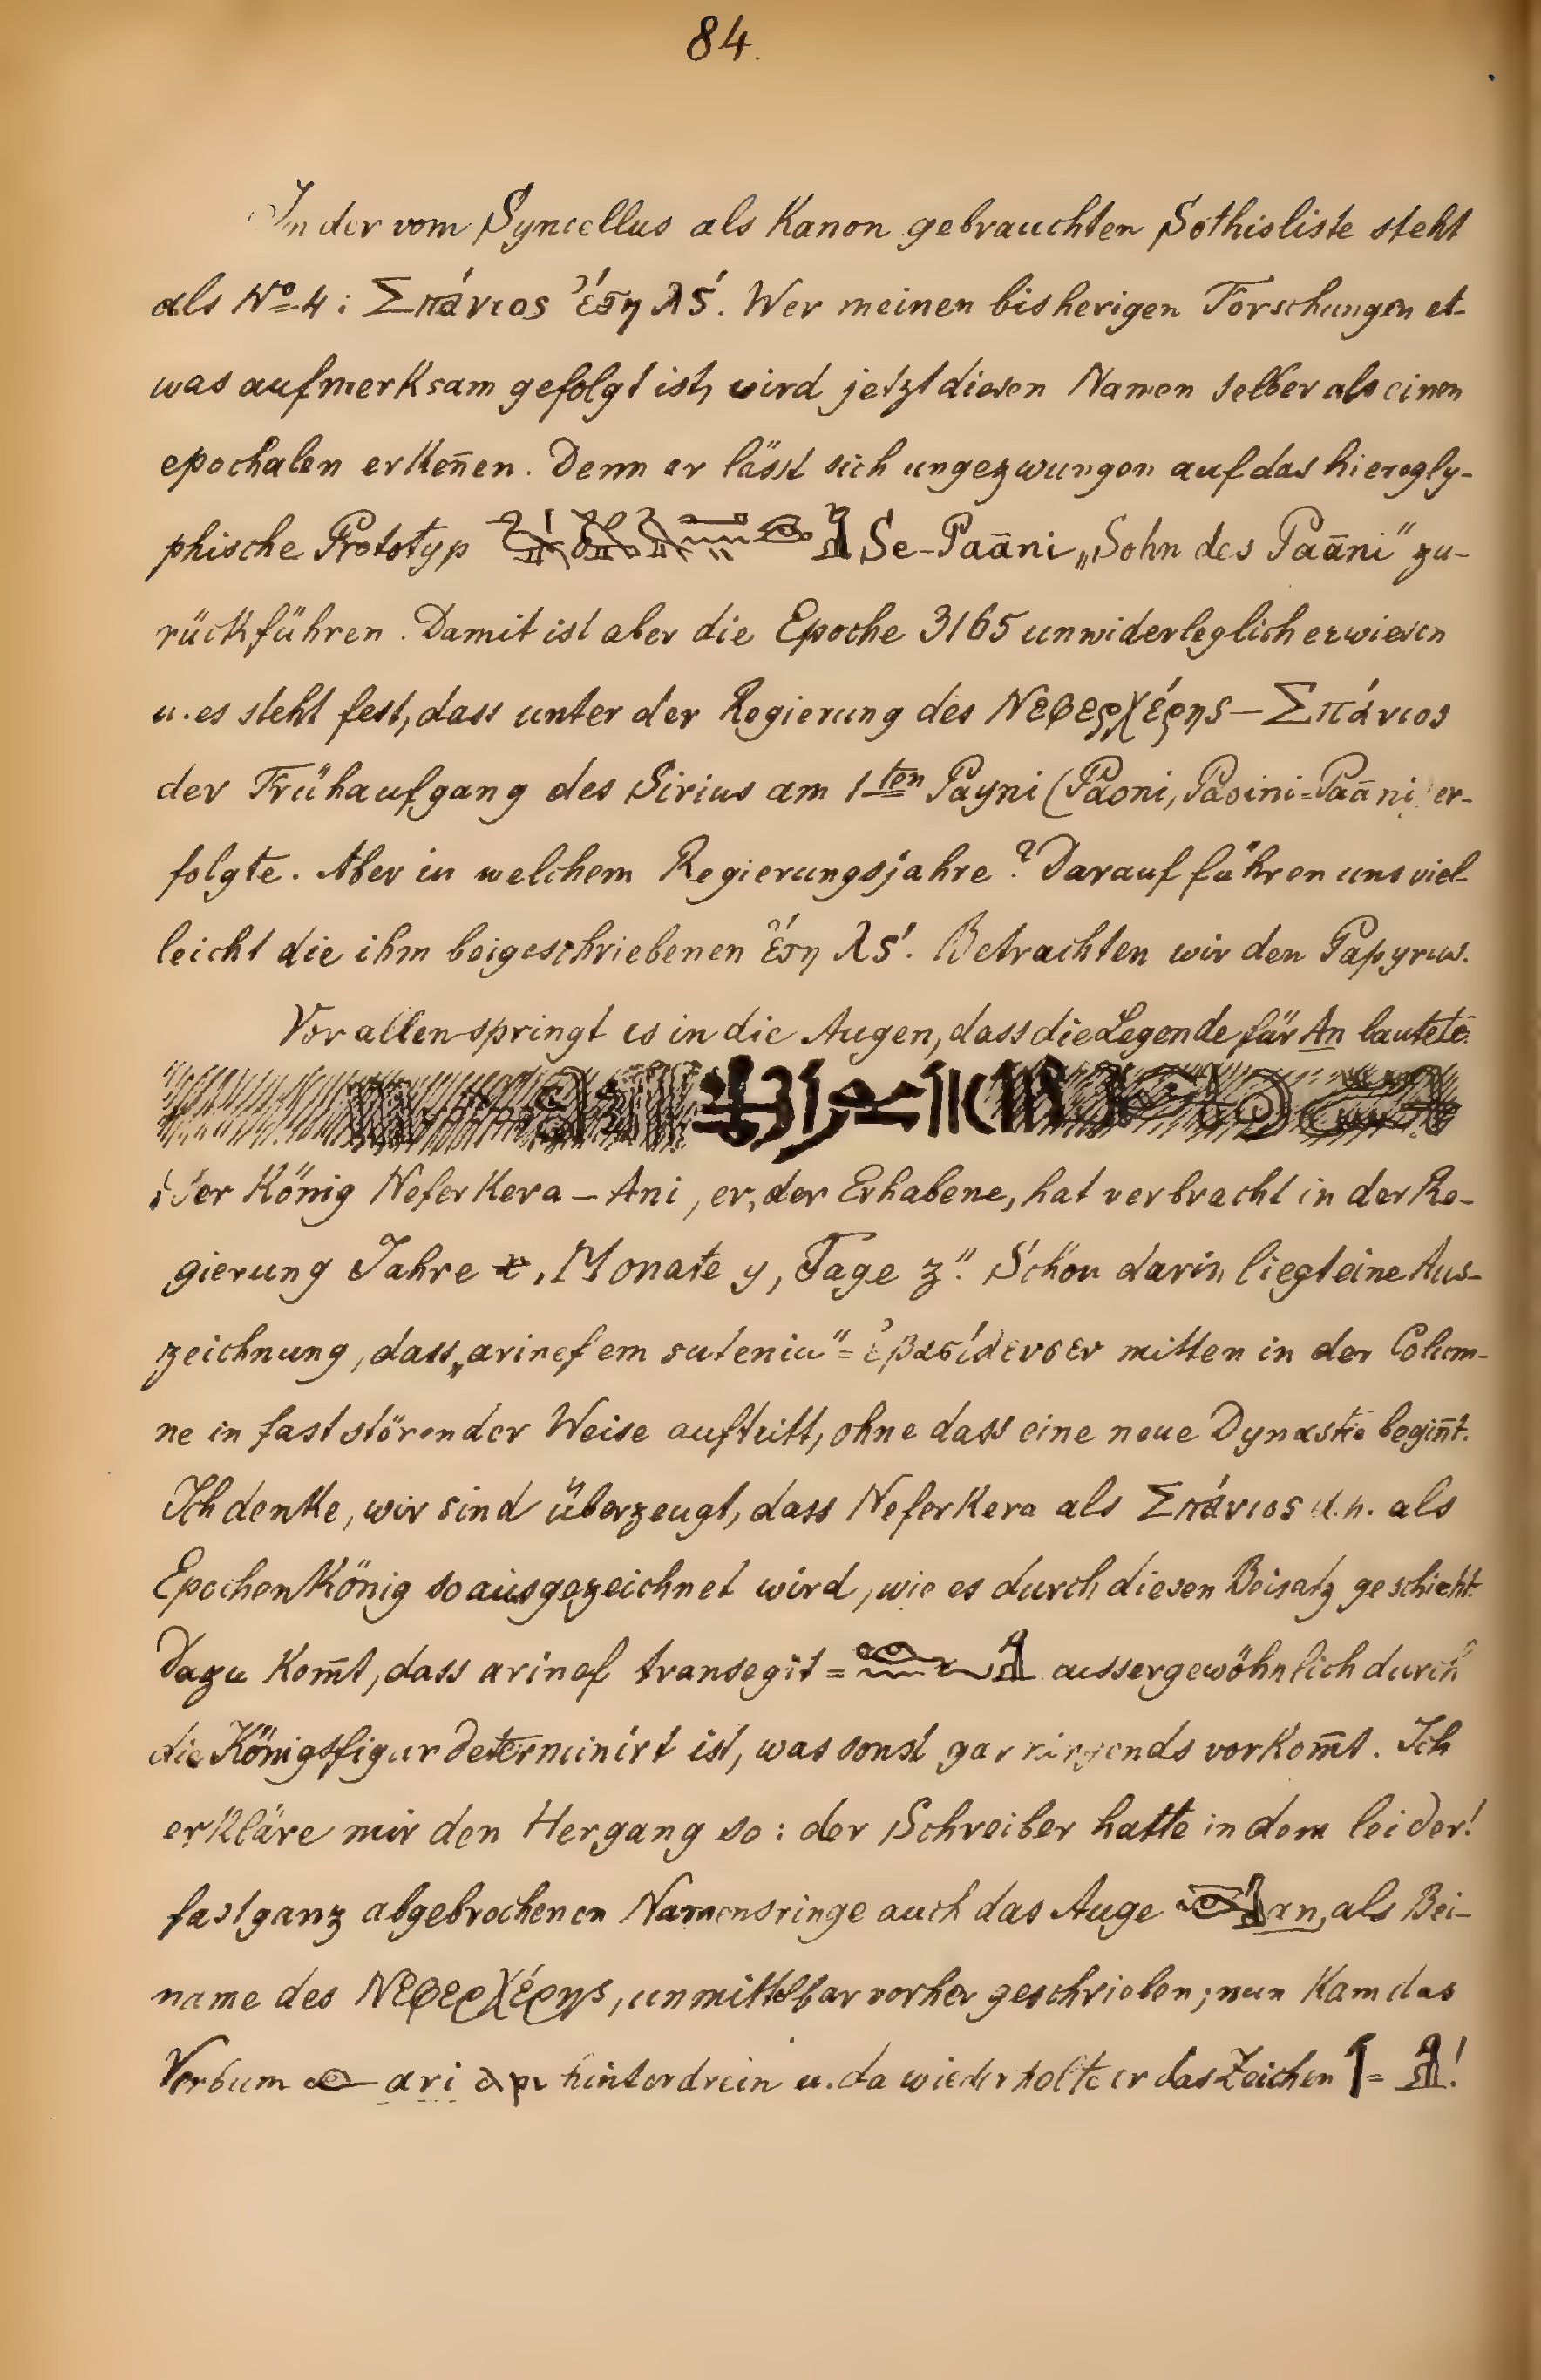 84.
In der vom Syncellus als Kanon gebrauchten Sothisliste steht
als No 4: Σπάνιος ἔτη λς´. Wer meinen bisherigen Forschungen et-
was aufmerksam gefolgt ist, wird jetzt diesen Namen selber als einen
epochalen erkeñen. Denn er lässt sich ungezwungen auf das hierogly-
phische Prototyp Se-Paāni „Sohn des Paāni" zu-
rückführen. Damit ist aber die Epoche 3165 unwiderleglich erwiesen
u. es steht fest, dass unter der Regierung des Νεφερχέρης – Σπάνιος
der Frühaufgang des Sirius am 1ten Payni (Paoni, Paoini=Paāni) er-
folgte. Aber in welchem Regierungsjahre? Darauf führen uns viel-
leicht die ihm beigeschriebenen ἔτη λς´. Betrachten wir den Papyrus.
Vor allen springt es in die Augen, dass die Legende für An lautete
Der König Neferkera – Ani, er, der Erhabene, hat verbracht in der Re-
gierung Jahre x, Monate y, Tage z". Schon darin liegt eine Aus-
zeichnung, dass „arinef em suteniu" = ἐβασίλευσεν mitten in der Colum-
ne in fast störender Weise auftritt, ohne dass eine neue Dynastie begiñt.
Ich denke, wir sind überzeugt, dass Neferkera als Σπάνιος d.h. als
Epochenkönig so ausgezeichnet wird, wie es durch diesen Beisatz geschieht.
Dazu kom̄t, dass arinef transegit = aussergewöhnlich durch
die Königsfigur determinirt ist, was sonst gar nirgends vorkom̄t. Ich
erkläre mir den Hergang so: der Schreiber hatte in dem leider!
fast ganz abgebrochenen Namensringe auch das Auge an, als Bei-
name des Νεφερχέρης, unmittelbar vorher geschrieben; nun kam das
Verbum ari hinterdrein u. da wiederholte er das Zeichen = !